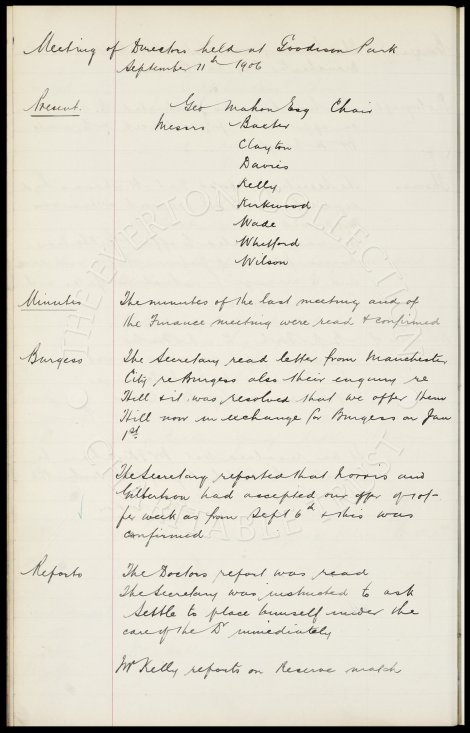 Meeting of Directors held at Goodison Park
September 11th 1906
Present. Geo Mahon Esq Chair
Messrs Baxter
Clayton
Davies
Kelly
Kirkwood
Wade
Whitford
Wilson
Minutes The minutes of the last meeting and of
the Finance meeting were read & confirmed
Burgess The Secretary read letter from Manchester
City re Burgess also their enquiry re
Hill & it was resolved that we offer them
Hill now in exchange for Burgess on Jan
1st.
The Secretary reported that and
Gilbertson had accepted our offer of 10/-
per week as from Sept 6th & this was
confirmed
Reports The Doctors report was read
The Secretary was instructed to ask
Settle to place himself under the
care of the Dr immediately
Mr Kelly reports on Reserve match
THE EVERTON COLLECTION
CHARITABLE TRUST